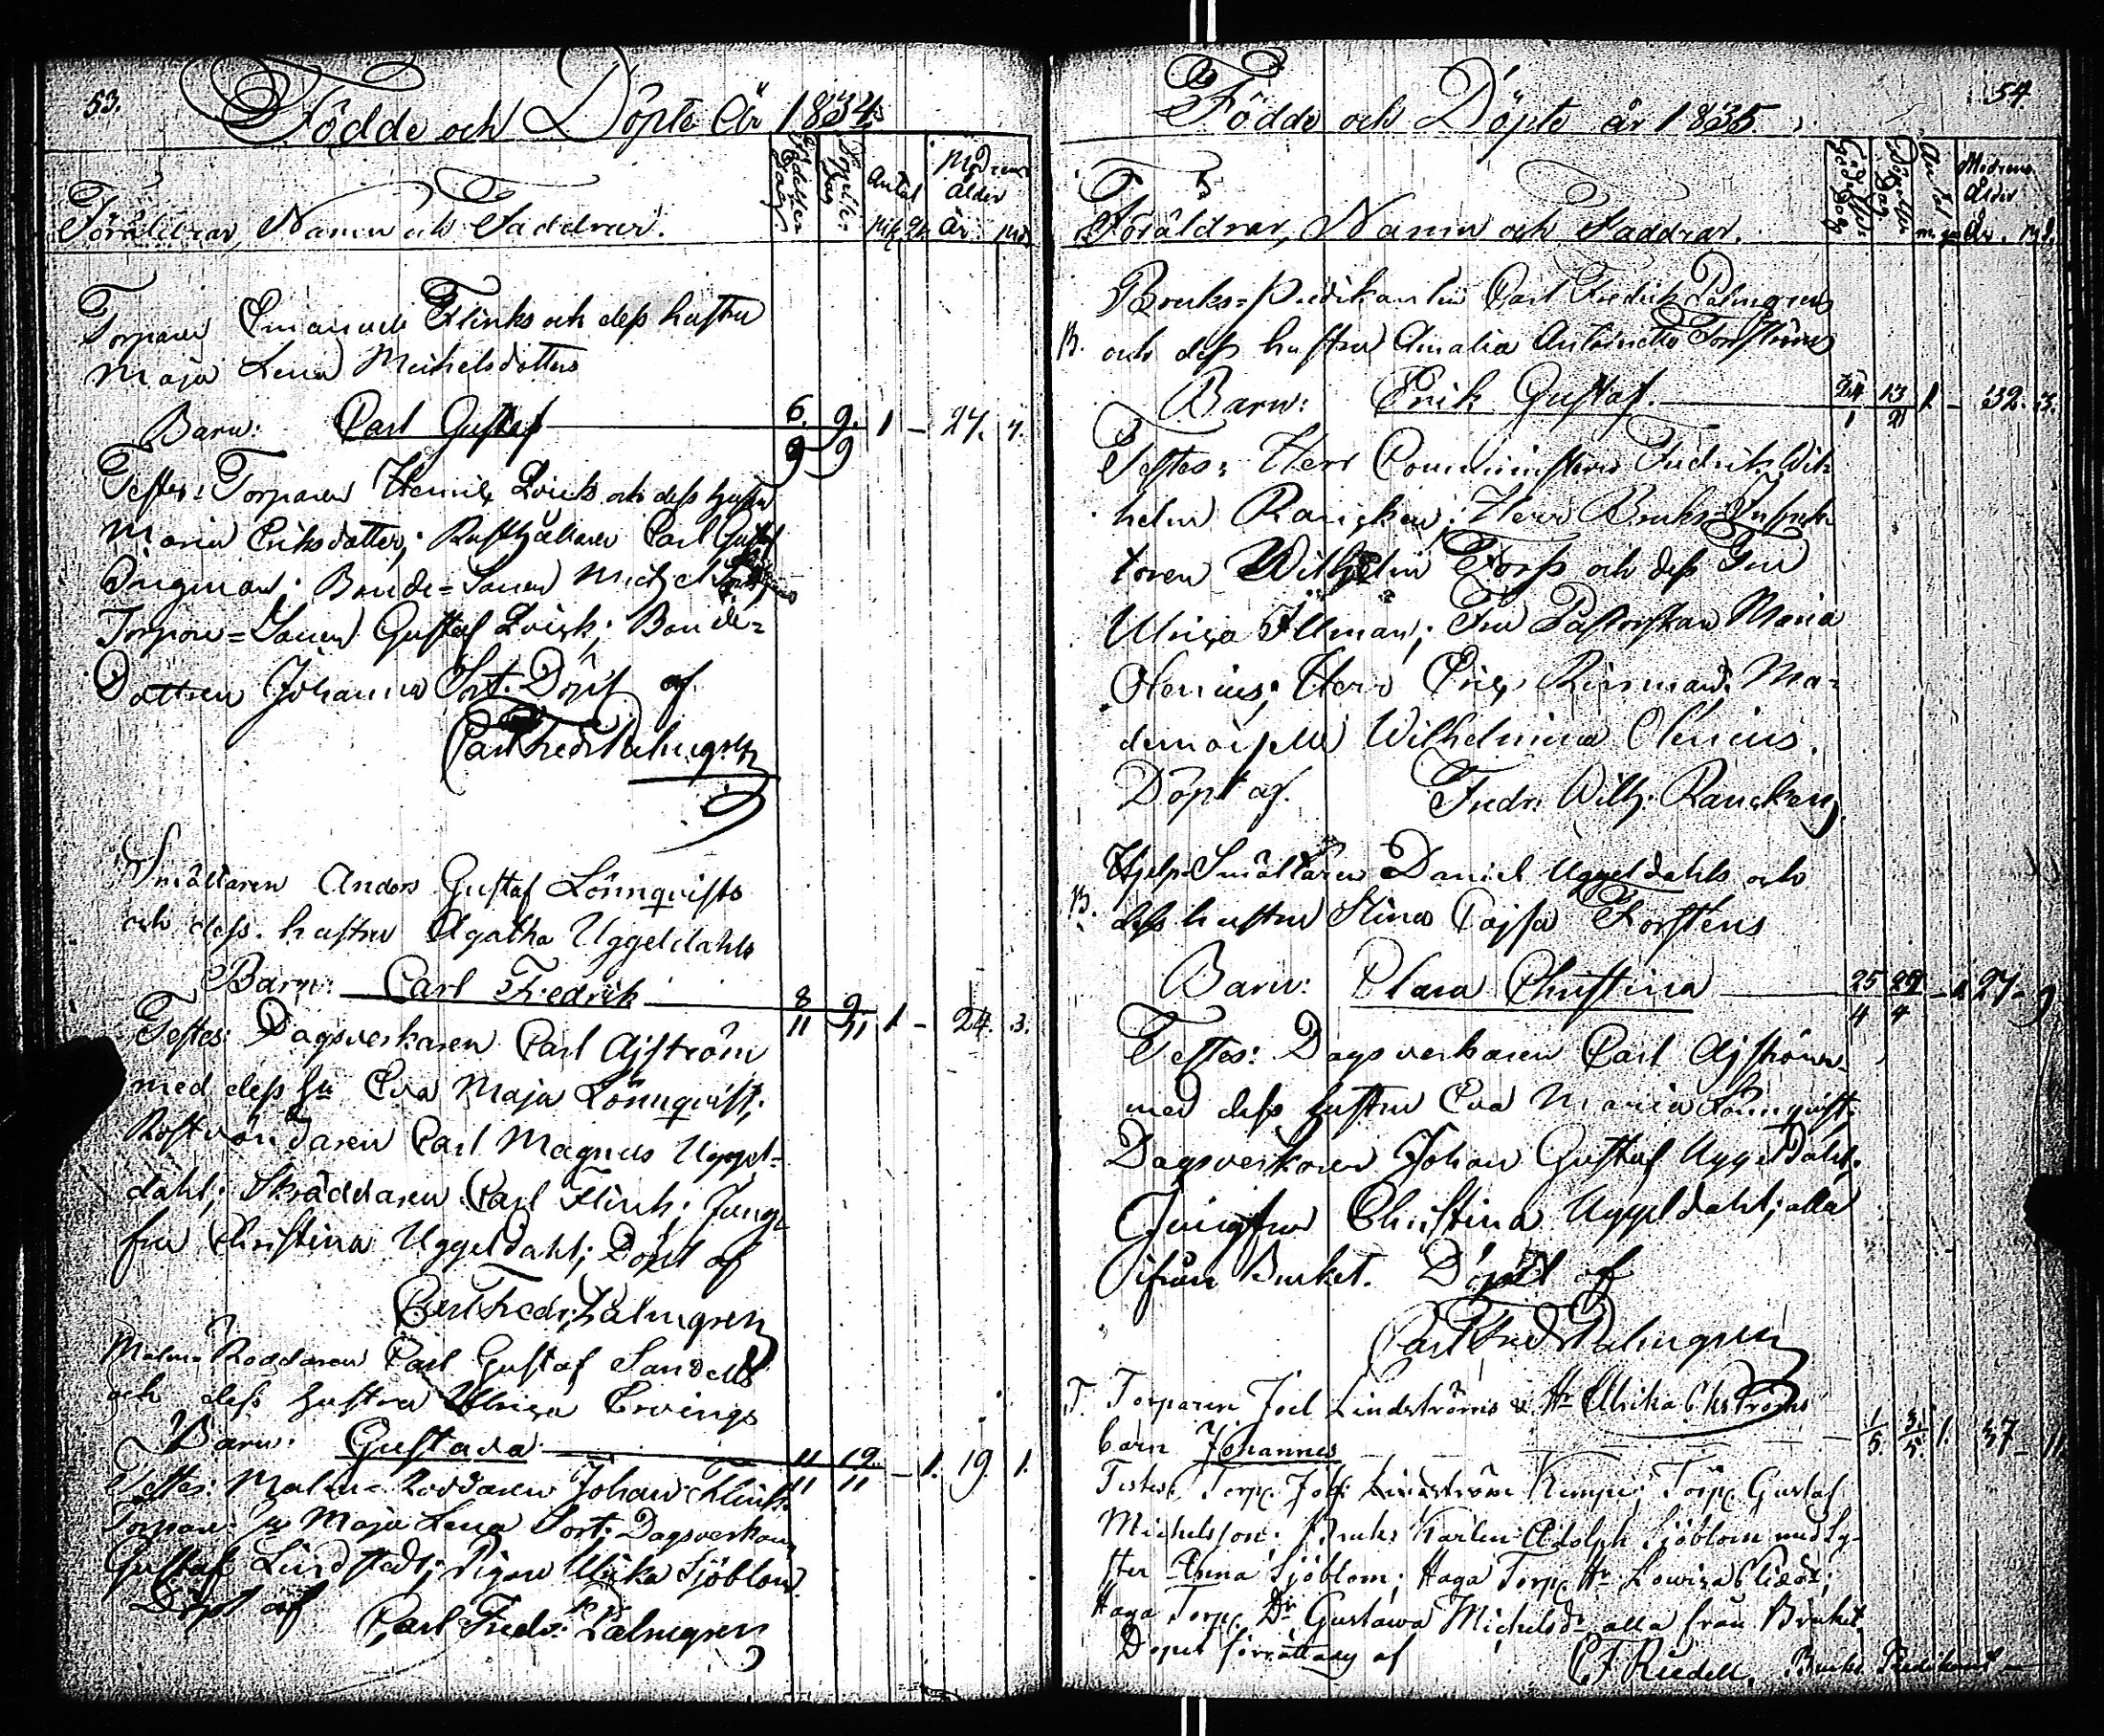 53.
Födde och Döpte År 1834.
Föräldrar, Namn och Faddrar.
Födelse-Dag
Döpelse-Dag
Antal
Mk. Qk.
Mödrens Ålder
År
Torparen Emanuels Flinks och dess hustru
Maja Lena Michelsdotters
Barn: Carl Gustaf 6/9 9/9 1 – 27. 7.
Testes: Torparen Henric Qvick och dess hustru
Maria Eriksdotter; Rusthållaren Carl Gustaf
Öngman; Bonde-Sonen Michel
Torpare-Sonen Gustaf Qvick; Bonde-
Dottren Johanna Sort. Döpt af
Carl Fredr Palmgren
Smältaren Anders Gustaf Lönnqvists
och dess hustru Agatha Uggeldahls
Barn: Carl Fredrik 8/11 9/11 1 – 24. 3.
Testes: Dagsverkaren Carl Ajström
med dess hu Eva Maja Lönnqvist;
Rostvändaren Carl Magnus Uggel-
dahl; Skräddaren Carl Flink; Jung-
fru Christina Uggeldahl; Döpt af
Carl Fredr: Palmgren
Malm-Roddaren Carl Gustaf Sandells
och dess hustru Ulrica Ervings
Barn: Gustava 11/11 12/11 – 1. 19. 1.
Testes: Malm-Roddaren Johan Flink
Torpare hu Maja Lena Sort; Dagsverkaren
Gustaf Lindstedt; Pigan Ulrika Sjöblom.
Döpt af Carl Fredr: Palmgren
54.
Födde och Döpte år 1835.
Föräldrar, Namn och Faddrar.
Födelse-Dag
Döpelse Dag
Antal
m. qu.
Mödrens Ålder
År.
Bruks-Predikanten Carl Fredrik Palmgrens
B. och dess hustru Amalia Antoinetta Forsströms
Barn: Erik Gustaf. 24/1 13/2 1 – 32. 3.
Testes: Herr Comministern Fredrik Wil-
helm Rancken; Herr Bruks-Inspek-
toren Wilhelm Forss och dess Fru
Ulrica Illman; Fru Pastorskan Maria
Olenius; Herr Eric Rinman; Ma-
demoiselle Wilhelmina Olenius.
Döpt af. Fredr: Wilh: Rancken
Hjelp-Smältaren Daniel Uggeldahls och
B. dess hustru Stina Cajsa Forstens
Barn: Clara Christina 25/4 29/4 – 1 27 – 9
Testes: Dagsverkaren Carl Ajström
med dess hustru Eva Maria Lönnqvist;
Dagsverkaren Johan Gustaf Uggeldahl;
Jungfru Christina Uggeldahl; alla
ifrån Bruket. Döpt af
Carl Fred Palmgren
T. Torparen Joel Lindströms & Hu Ulrika Ekströms
barn Johannes 1/5 3/5 1. 37 – 11
Testes: Torp. Joh: Lindström Kimpi; Torp. Gustaf
Michelsson; Bruks Karlen Adolph Sjöblom med Sy-
ster Anna Sjöblom; Haga Torp. Hu Lowisa;
Haga Torp. Dr Gustawa Michelsdr alla från Bruket
Dopet förrättadt af C F Riedell, Bruks Predikant